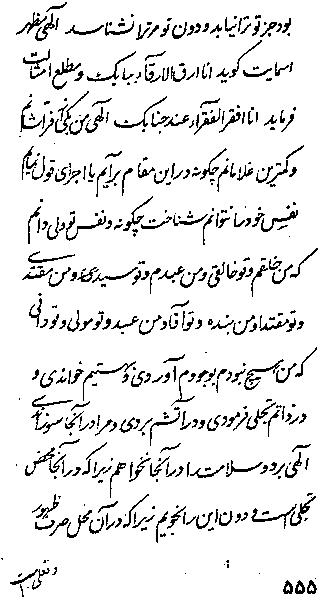 بود جز تو ترا نیابد و دون تو مر ترا نشناسد الهی مظهر
اسمایت گوید انا ارق الارقاء ببابک و مطلع امثالت
فرماید انا افقر الفقراء عند جنابک الهی من که کمتر
و کمترین غلامانم چگونه در این مقام بر آیم با اجرای قول نمایم
نفس خود را نتوانم شناخت چگونه نفس تو دلی دانم
که من خلقم و تو خالقی و من عبدم و تو سیدی و من مقتدی
و تو مقتدا و من بنده و تو آقا و من عبد و تو مولی و تو دانی
که من هیچ نبودم بوجودم آوردی نیستیم خواندی و
در ذاتم تجلی فرمودی و در آتشم بردی و مرا در آنجا سوزاندی
الهی برد و سلامت را در آنجا نخواهم زیرا که در آنجا محض
تجلی است و دون این را نجویم زیرا که در آن محل صرف ظهور
و تجلی است
۵۵۵